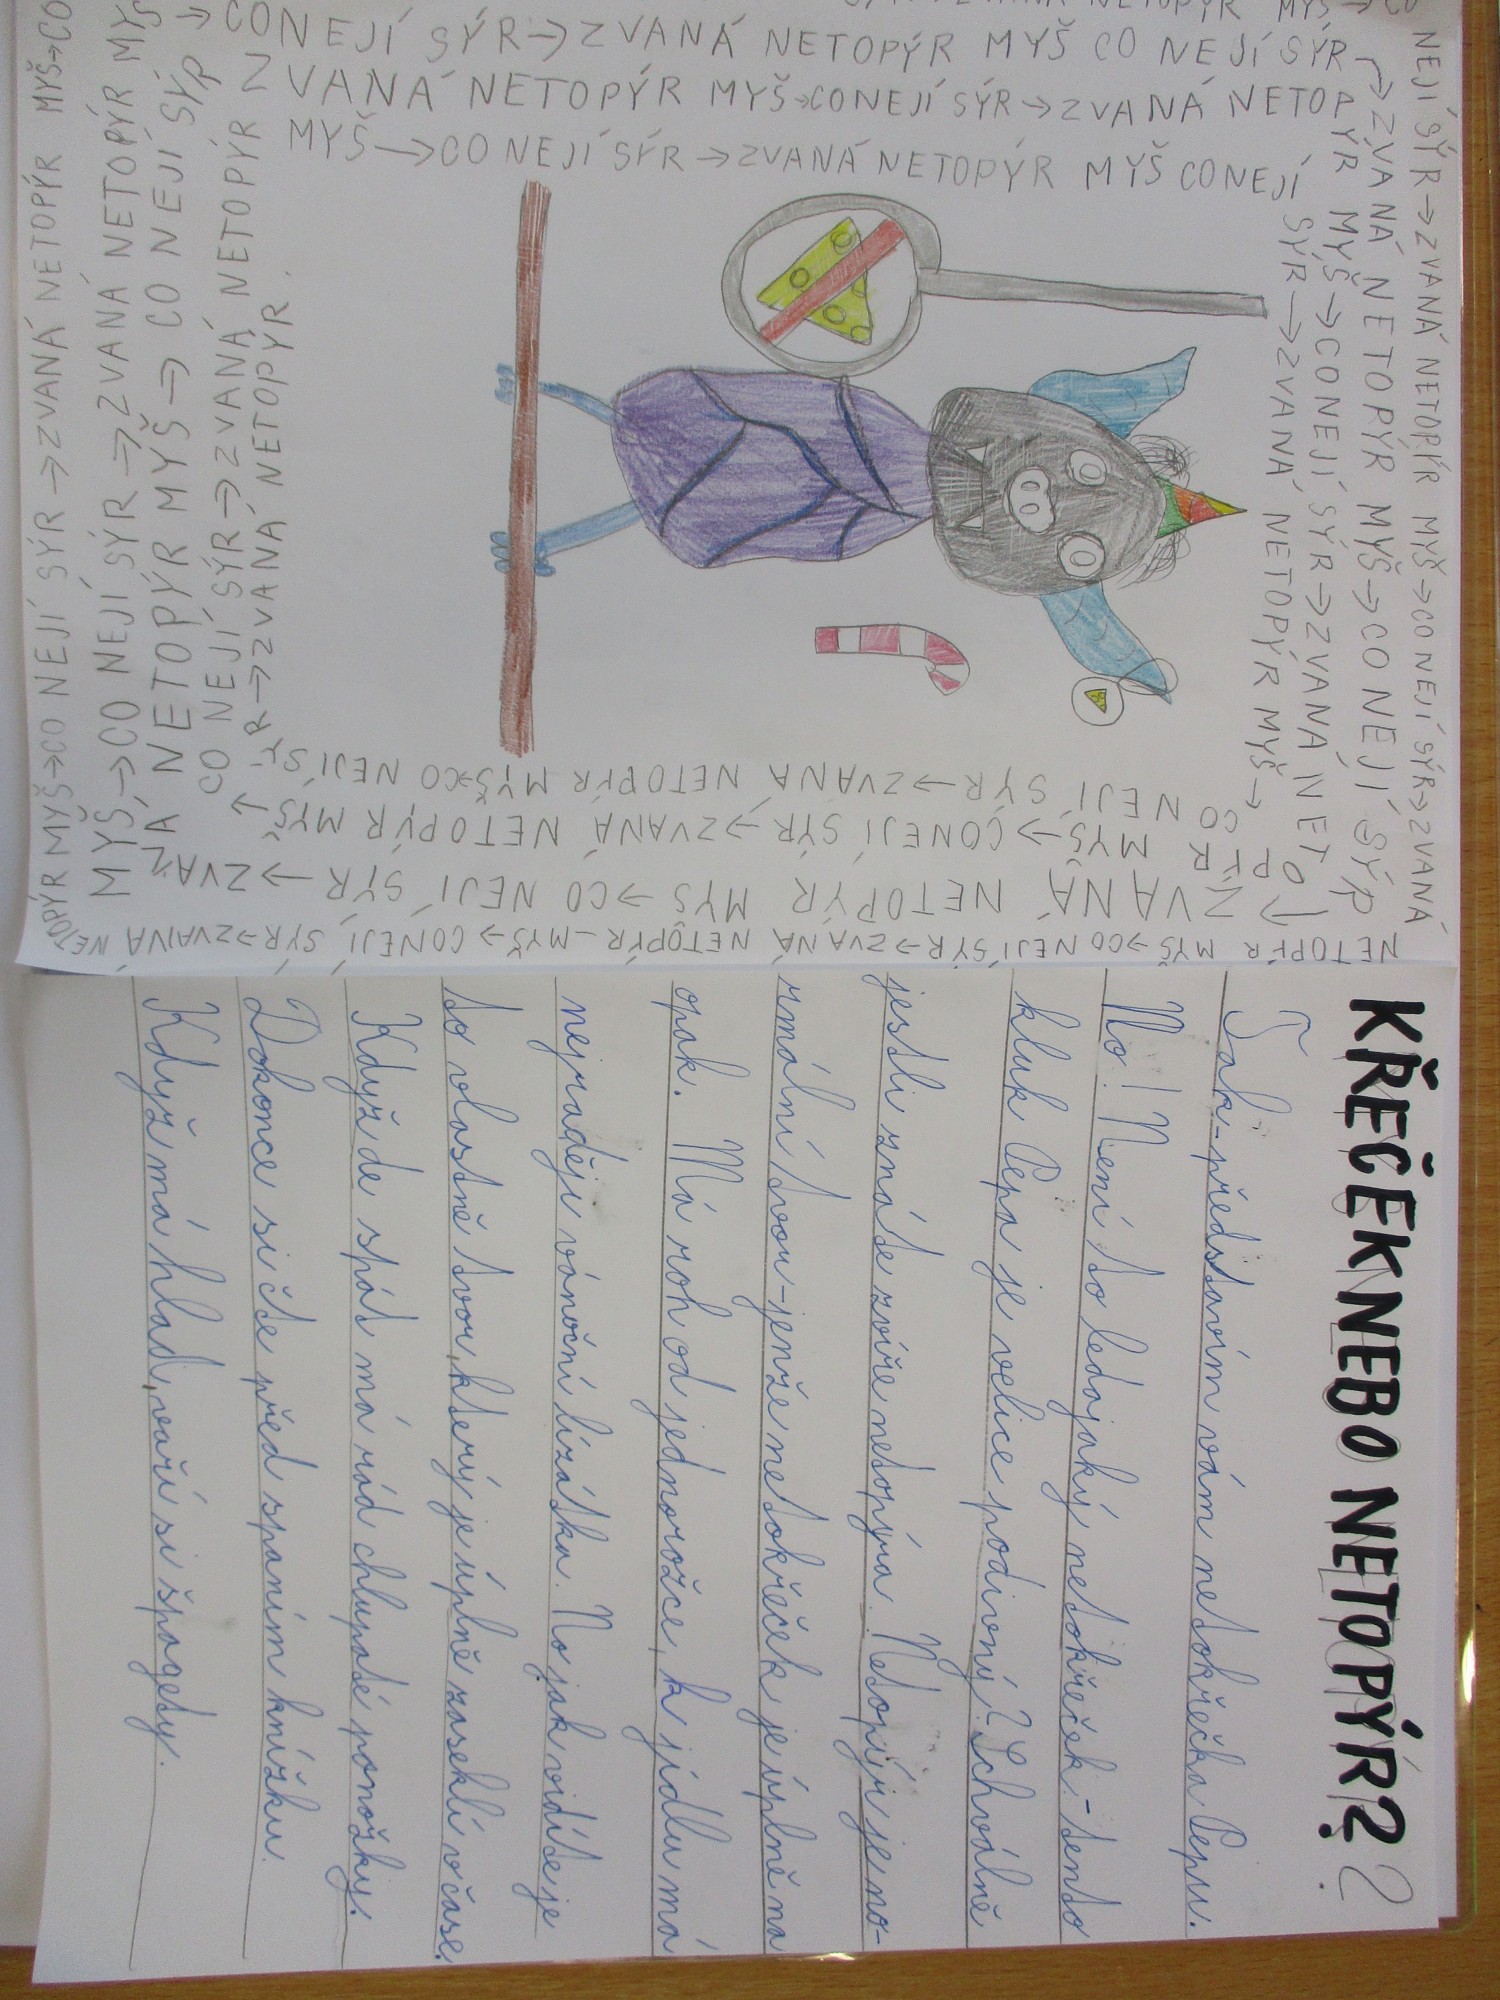 KŘEČEK NEBO NETOPÝR?
Tak-představím vám netokřečka Pepu.
No! Není to ledajaký netokřeček-tento
kluk Pepa je velice podivný? Schválně
jestli znáte zvíře netopýra. Netopýr je no-
rmální tvor-jenže netokřeček je úplně na
opak. Má roh od jednorožce, k jídlu má
nejraději vánoční lízátka. No jak vidíte je
to vlastně tvor, který je úplně zaseklí v čase.
Když de spát má rád chlupaté ponožky.
Dokonce si čte před spaním knížku.
Když má hlad, vaří si špagety.
→CO NEJÍ SÝR→ZVANÁ NETOPÝR MYŠ CO NEJÍ SÝR
ZVANÁ NETOPÝR MYŠ→CO NEJÍ SÝR→ZVANÁ NETOP
MYŠ→CO NEJÍ SÝR→ZVANÁ NETOPÝR MYŠ CO NEJÍ
NEJÍ SÝR→ZVANÁ NETOPÍR MYŠ→CO NEJÍ SÝR→ZVANÁ
→ZVANÁ NETOPÝR MYŠ→CO NEJÍ SÝR
ÝR MYŠ→CO NEJÍ SÝR→ZVANÁ NET
SÝR→ZVANÁ NETOPÝR MYŠ→
NETOPÝR MYŠ→CO NEJÍ SÝR→ZVANÁ NETOPÝR-MYŠ→CO NEJÍ SÝR→ZVANÁ
→ZVANÁ NETOPÝR MYŠ→CO NEJÍ SÝR→ZVA
OPÝR MYŠ→CO NEJÍ SÝR→ZVANÁ NETOPÝR MYŠ→
CO NEJÍ SÝR→ZVANÁ NETOPÝR MYŠ→CO NEJÍ SÝ
NETOPÝR MYŠ→CO NEJÍ SÝR→ZVANÁ NETOPÝR MYŠ→CO
MYŠ→CO NEJÍ SÝR→ZVANÁ NETOPÝR MYŠ
NÁ NETOPÝR MYŠ→CO NEJÍ SÝR
CO NEJÍ SÝR→ZVANÁ NETOPÝR
R→ZVANÁ NETOPÝR.